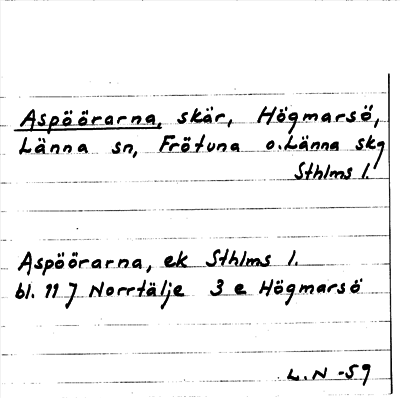 Aspöörarna, skär, Högmarsö,
Länna sn, Frötuna o. Länna skg
Sthlms l.
Aspöörarna, ek Sthlms l.
bl. 11 J Norrtälje 3 e Högmarsö
L.N -59